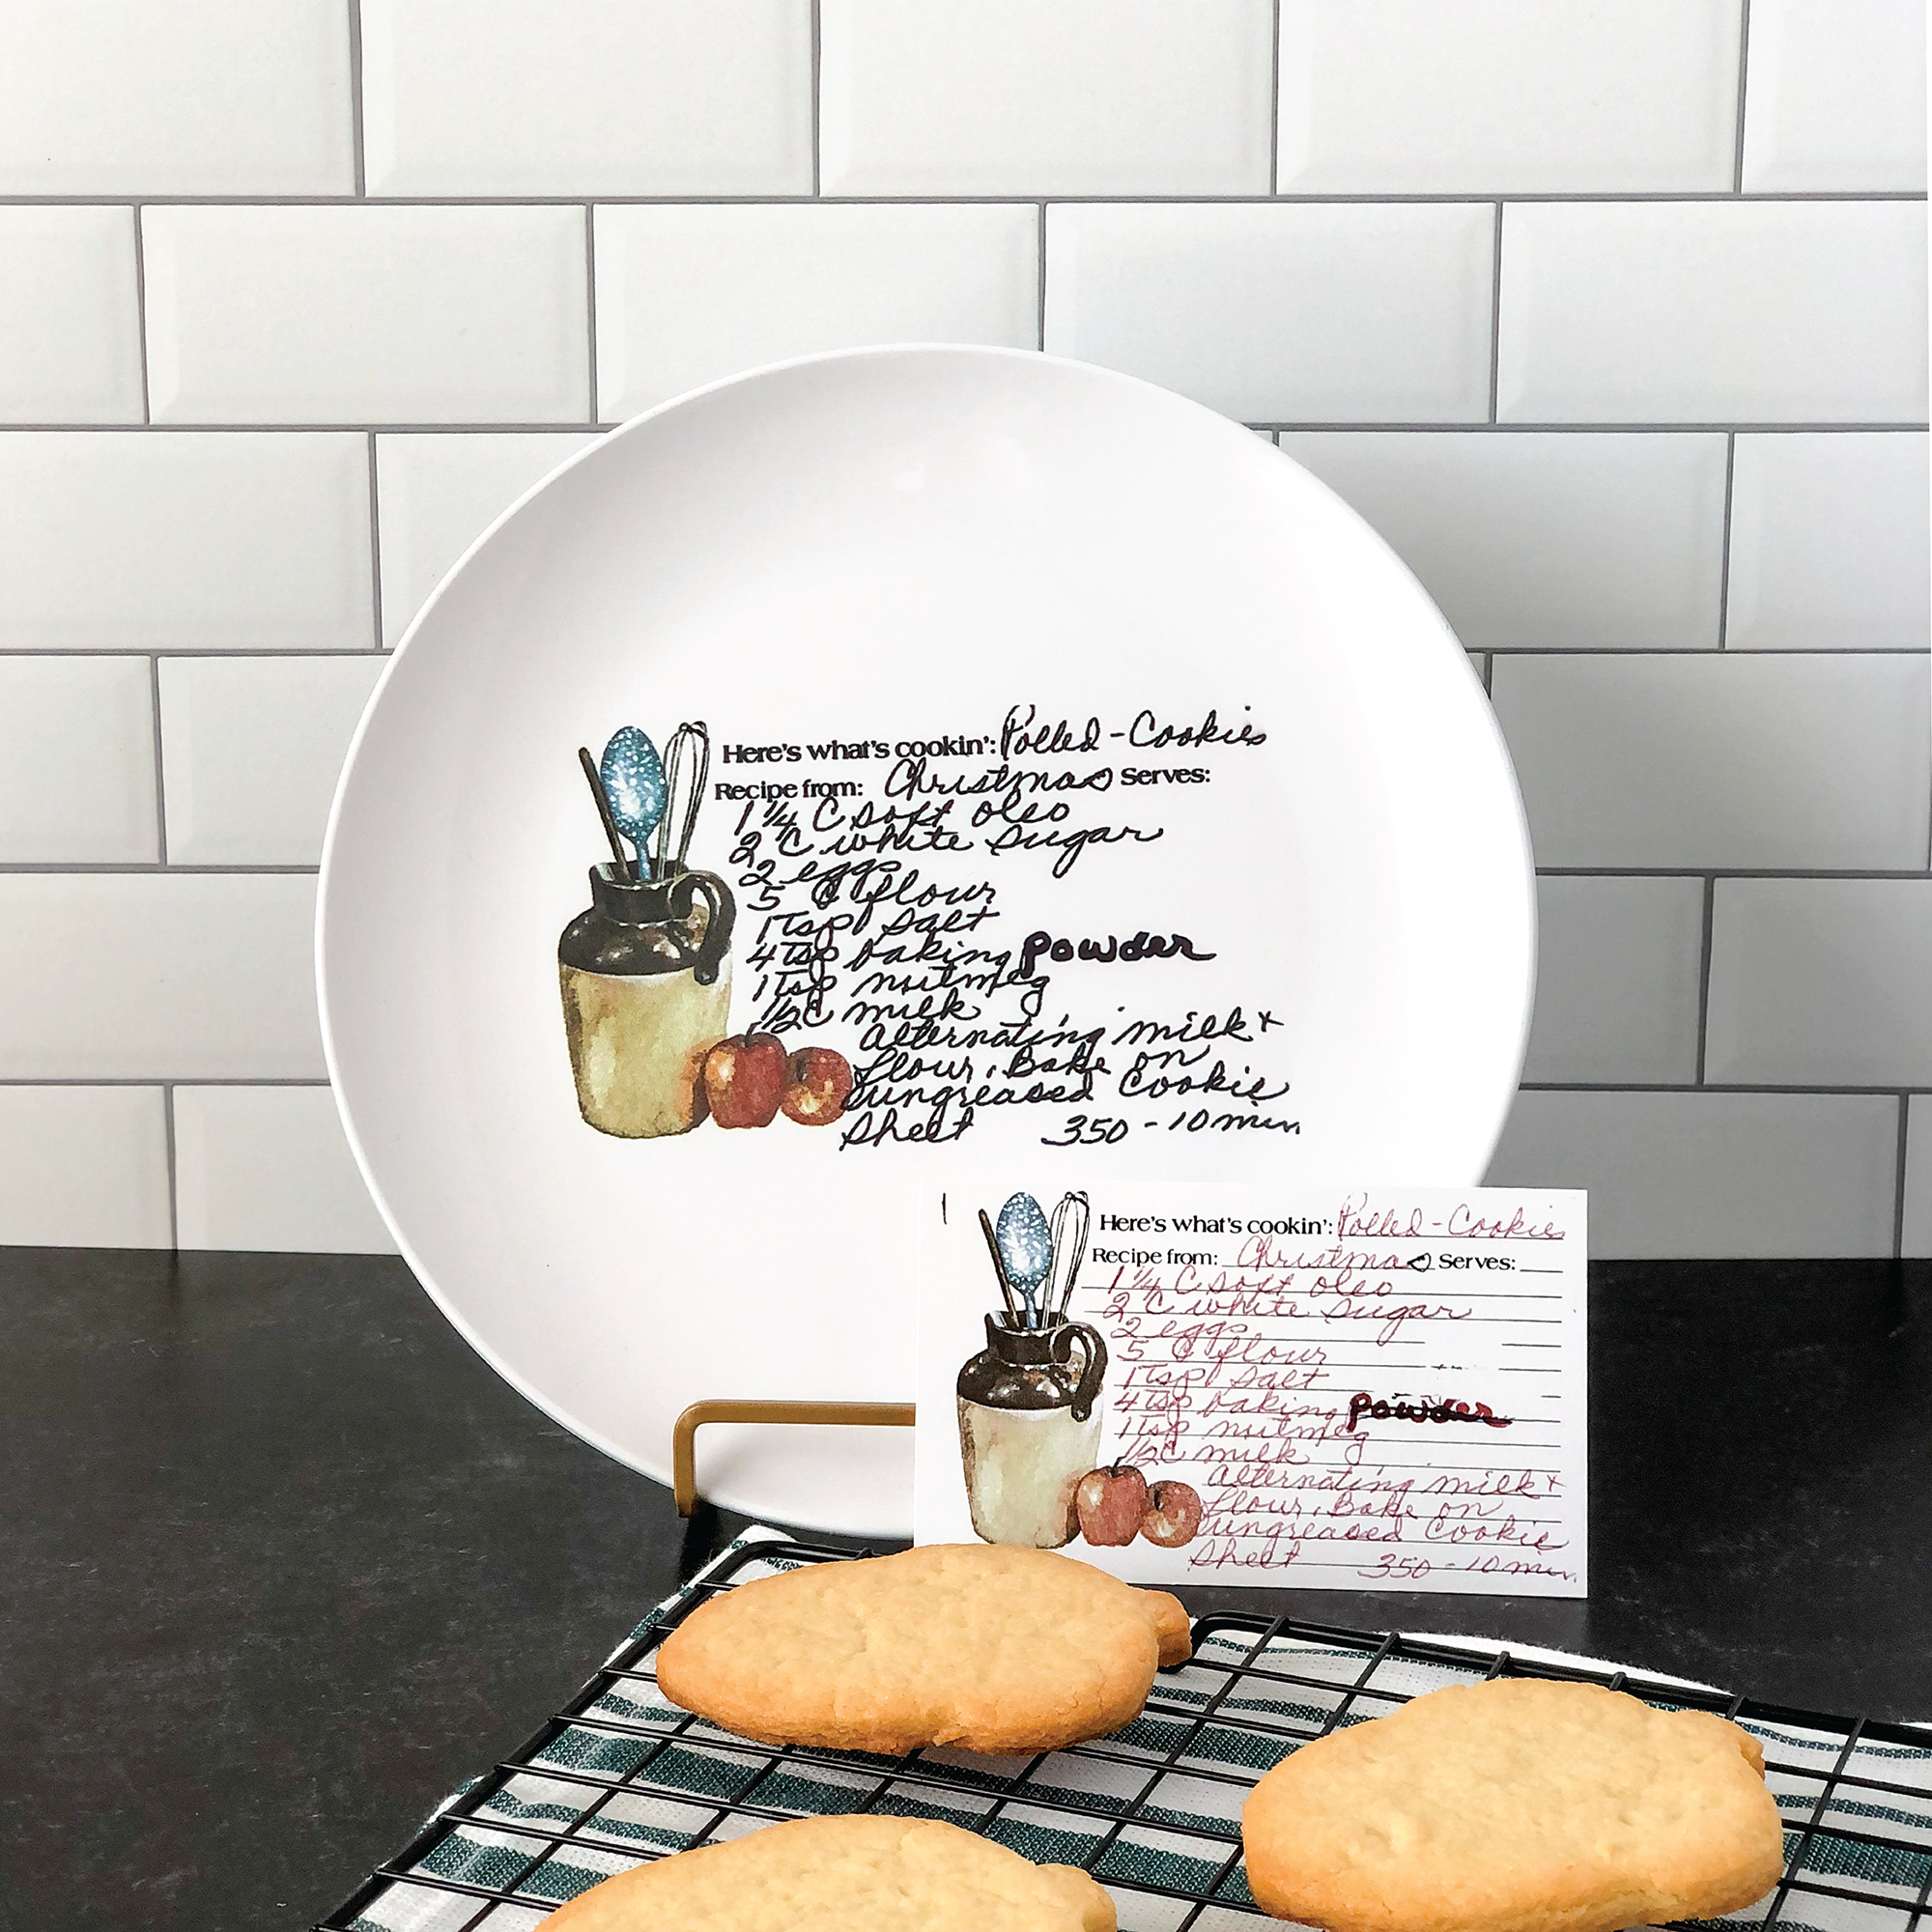 Here's what's cookin': Rolled-Cookies
Recipe from: Christmas Serves:
1 1/4 C soft oleo
2 C white sugar
2 eggs
5 C flour
1 Tsp salt
4 Tsp baking powder
1 Tsp nutmeg
1/2 C milk
alternating milk +
flour, Bake on
ungreased Cookie
Sheet 350 - 10 min.
Here's what's cookin': Rolled-Cookies
Recipe from: Christmas Serves:
1 1/4 C soft oleo
2 C white sugar
2 eggs
5 C flour
1 Tsp salt
4 Tsp baking powder
1 Tsp nutmeg
1/2 C milk
alternating milk +
flour, Bake on
ungreased Cookie
Sheet 350 - 10 min.